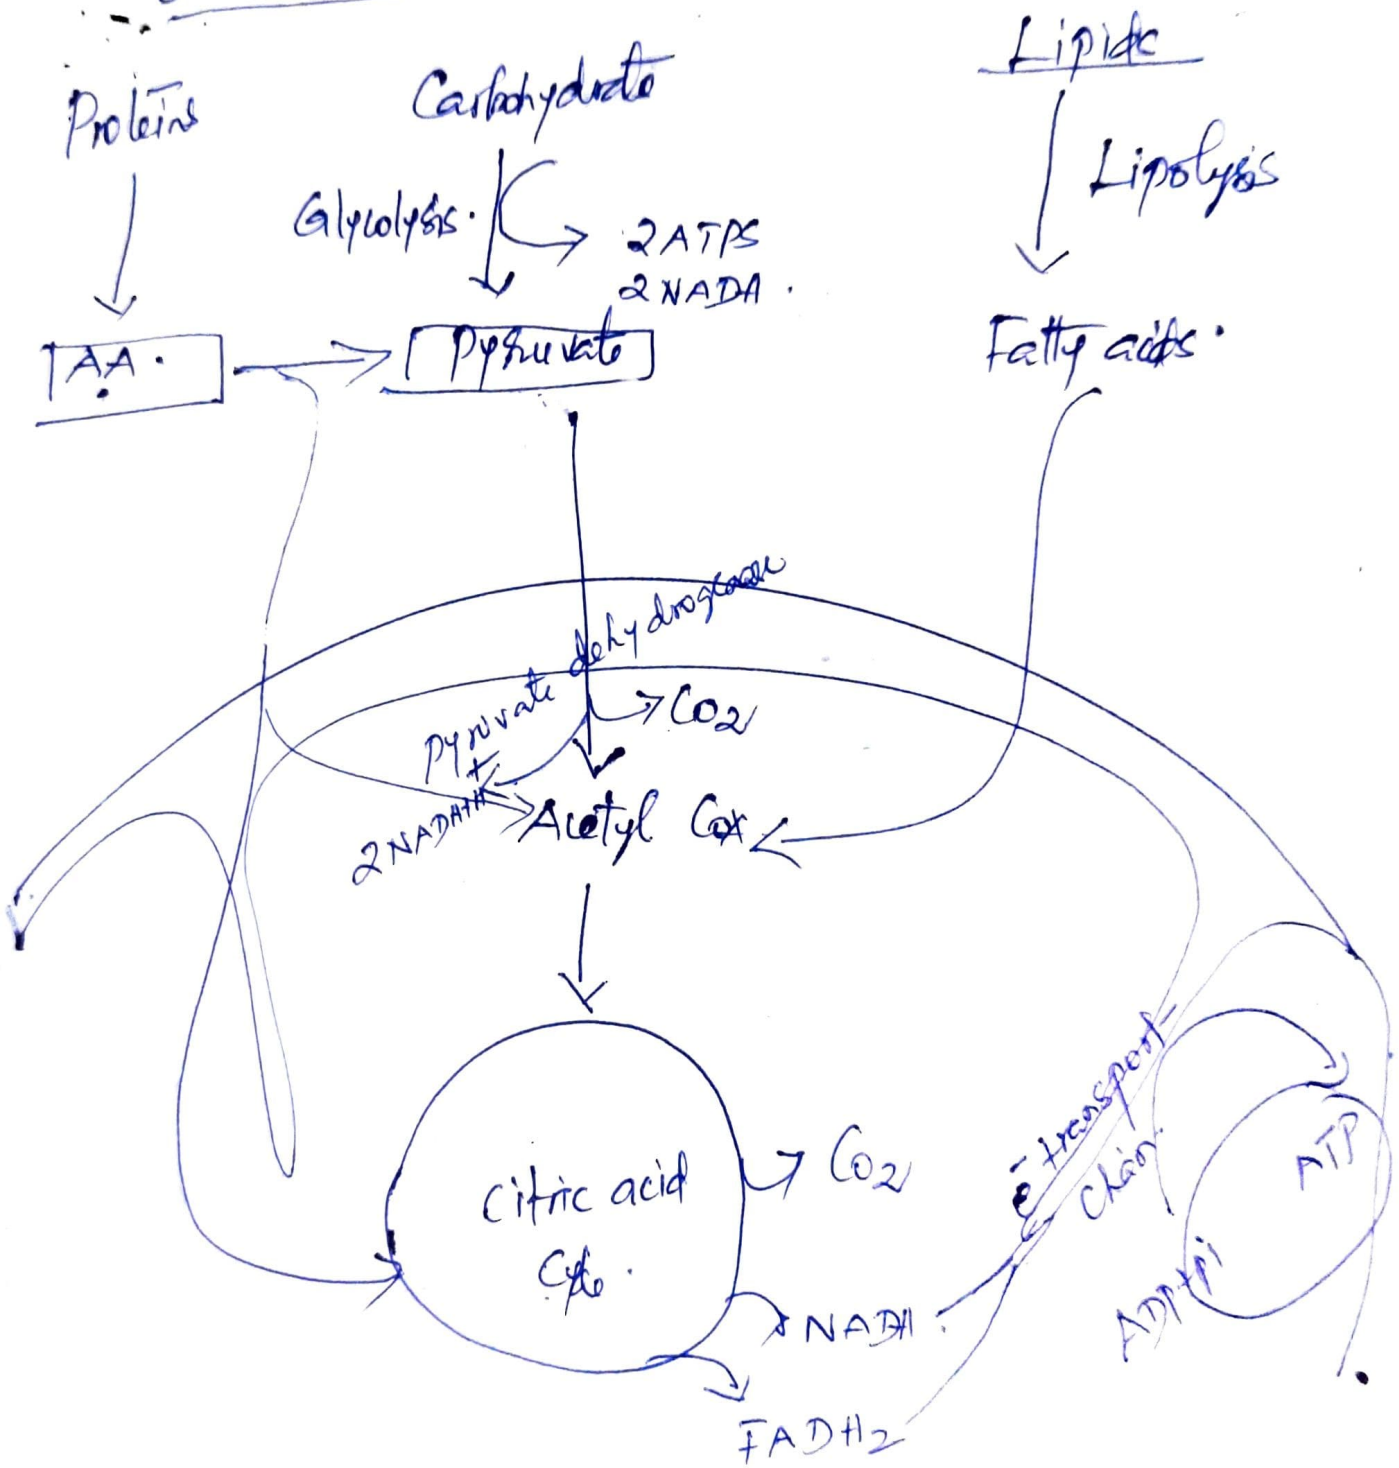 Proteins
Carbohydrate
Lipids
Glycolysis.
2 ATPS
2 NADH.
Lipolysis
AA.
Pyruvate
Fatty acids.
Pyruvate dehydrogenase
CO2
+
2NADH+H
Acetyl CoA
Citric acid
Cycle.
CO2
NADH.
FADH2
e- transport
Chain.
ATP
ADP+Pi